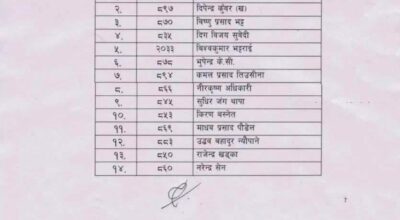 २. ८९७ दिपेन्द्र कुंवर (ख)
३. ८७० विष्णु प्रसाद भट्ट
४. ८३५ दिग विजय सुवेदी
५. २०३३ विश्वकुमार भट्टराई
६. ८७८ भुपेन्द्र के.सी.
७. ८९४ कमल प्रसाद तिउसीना
८. ८६६ नीरकृष्ण अधिकारी
९. ८४५ सुधिर जंग थापा
१०. ८५३ किरण बस्नेत
११. ८६९ माधव प्रसाद पौडेल
१२. ८८३ उद्धव बहादुर न्यौपाने
१३. ८५० राजेन्द्र खड्का
१४. ८६० नरेन्द्र सेन